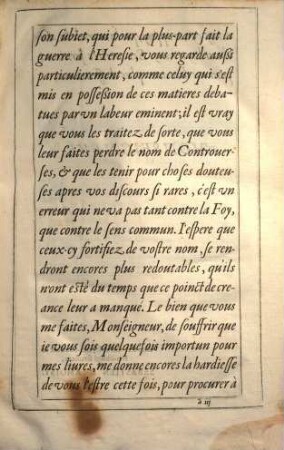 son subiet, qui pour la plus-part fait la
guerre à l'Heresie, vous regarde aussi
particulierement, comme celuy qui s'est
mis en possession de ces matieres deba-
tues par vn labeur eminent; il est vray
que vous les traitez de sorte, que vous
leur faites perdre le nom de Controuer-
ses, & que les tenir pour choses douteu-
ses apres vos discours si rares, c'est vn
erreur qui ne va pas tant contre la Foy,
que contre le sens commun. I'espere que
ceux-cy fortifiez de vostre nom, se ren-
dront encores plus redoutables, qu'ils
n'ont esté du temps que ce poinct de cre-
ance leur a manqué. Le bien que vous
me faites, Monseigneur, de souffrir que
ie vous sois quelquefois importun pour
mes liures, me donne encores la hardiesse
de vous l'estre cette fois, pour procurer à
à iij